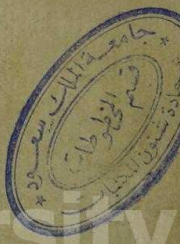 جامعة الملك سعود
قسم المخطوطات
عمادة شئون المكتبات
rsity